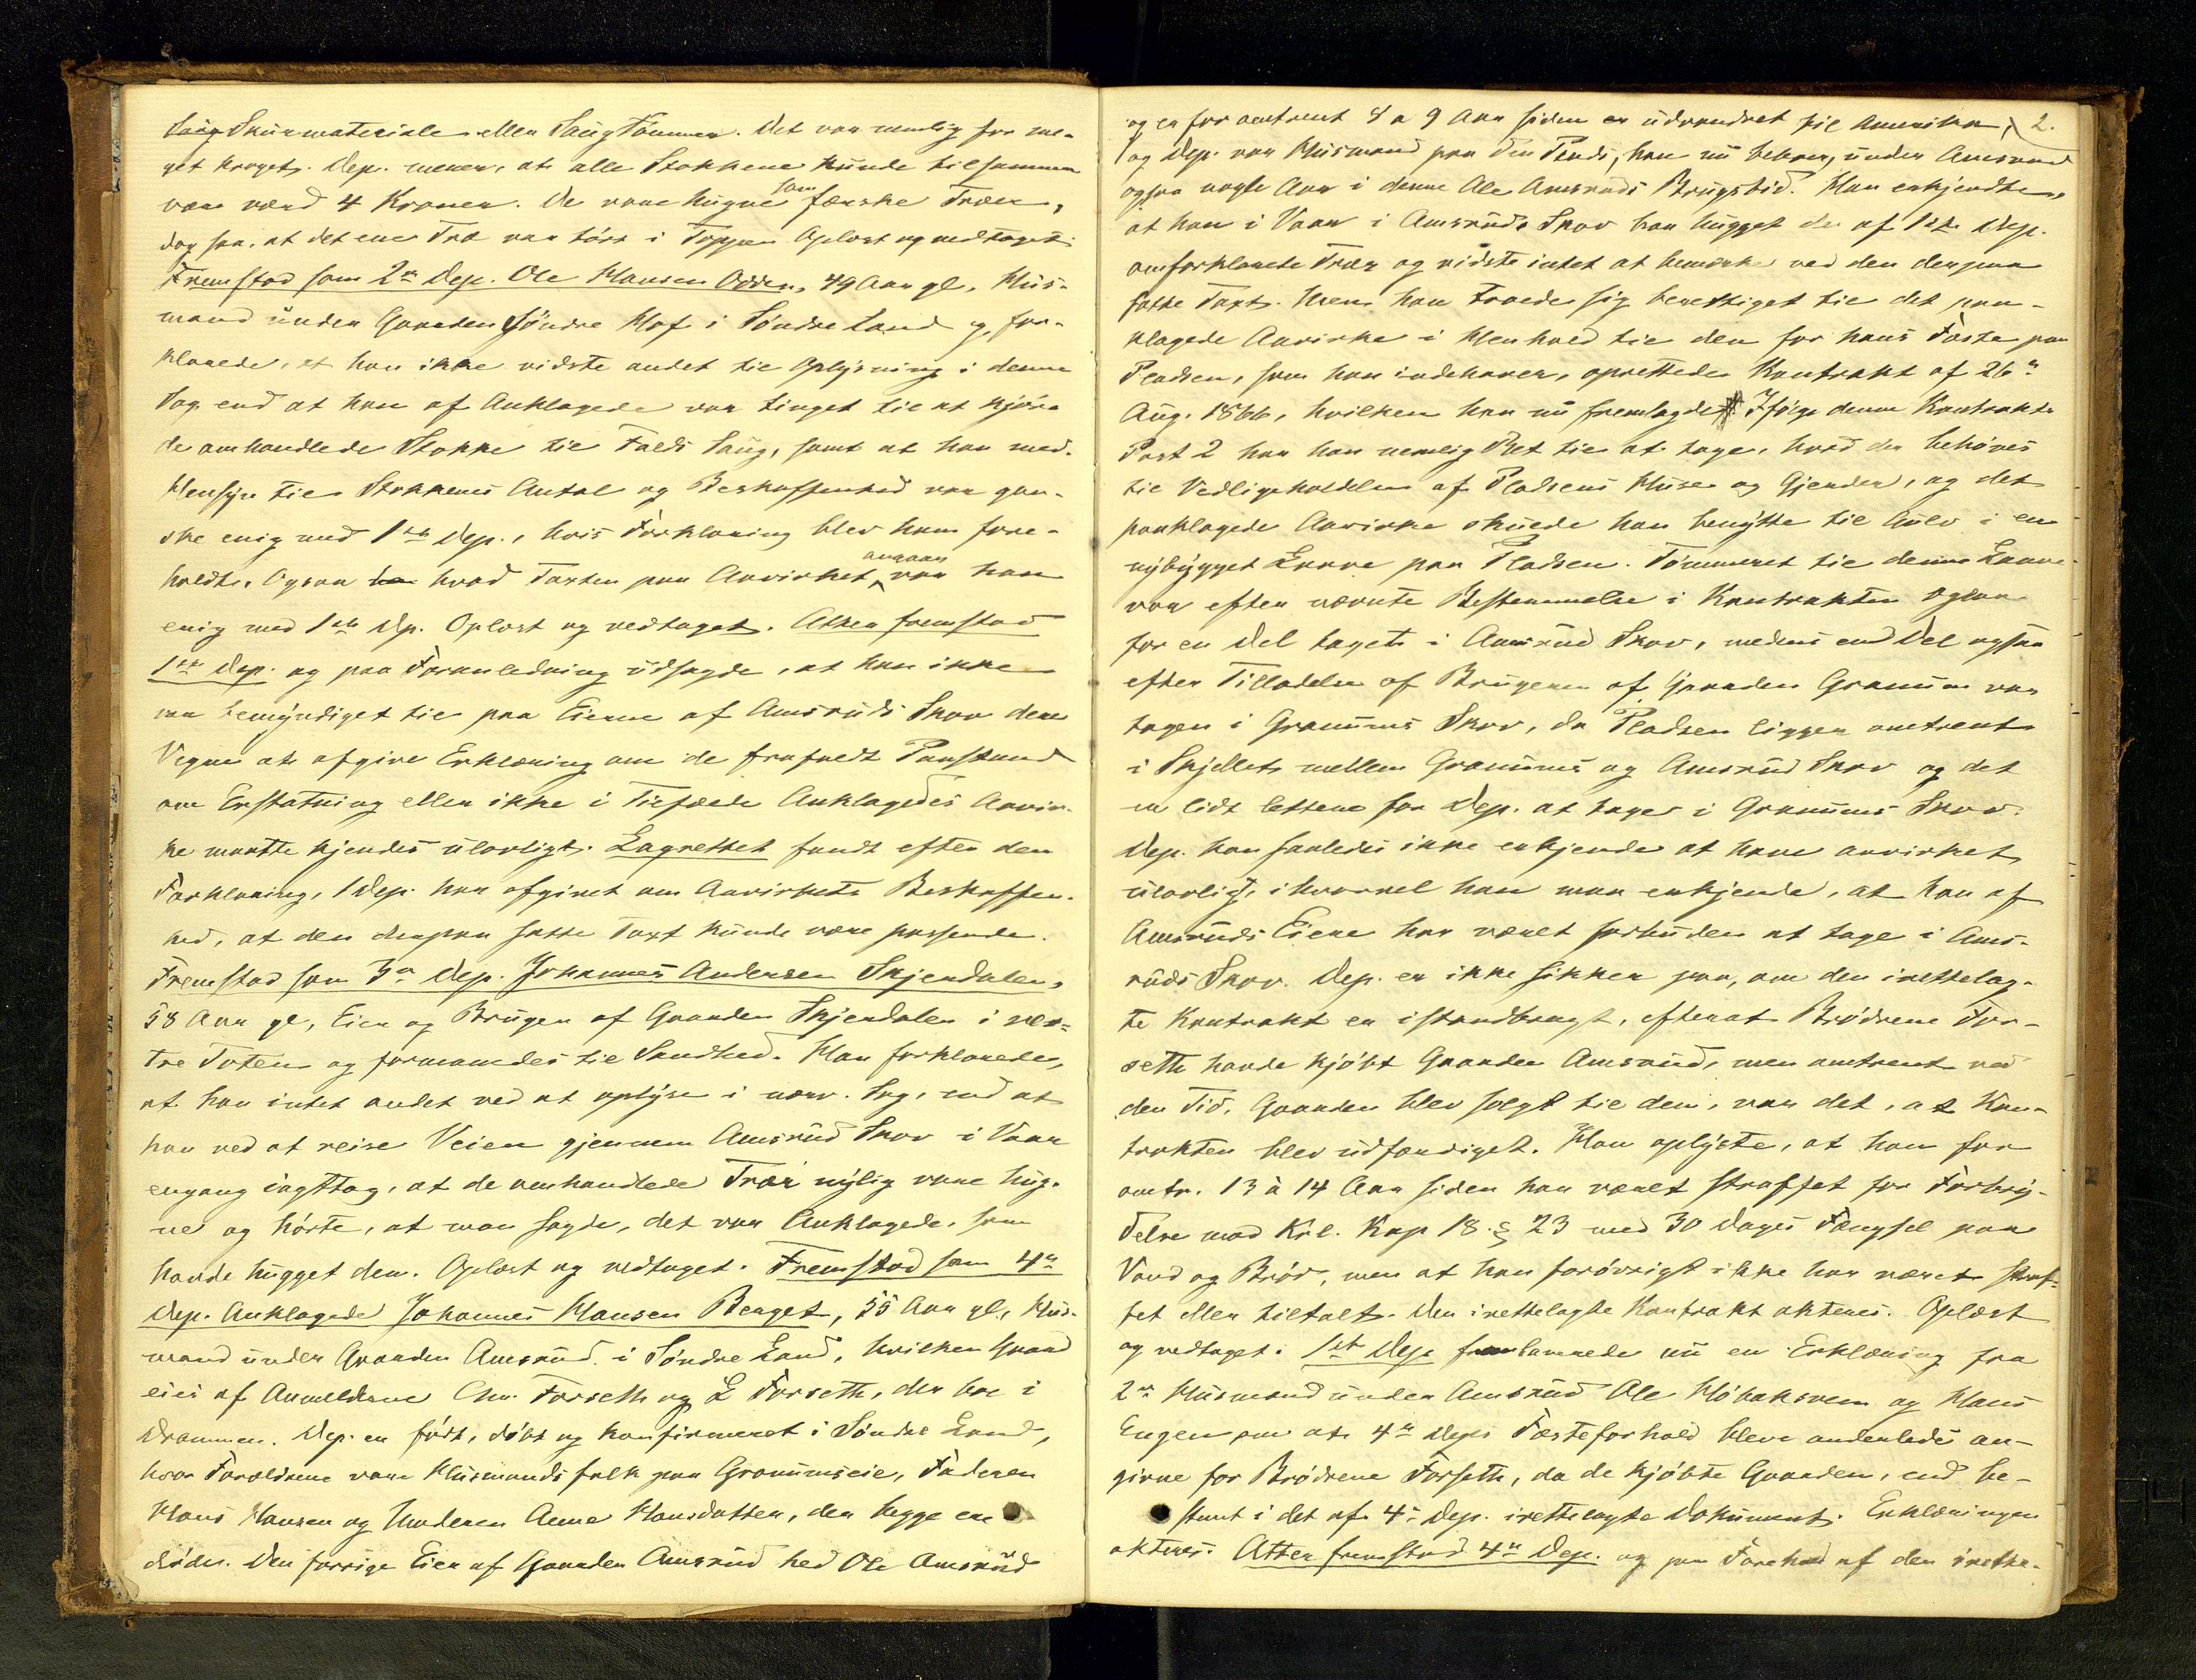 Saug Skurmateriale eller Saug Tømmer. Det var nemlig for me-
get kroget. Dep. mener, at alle Stokkene kunde tilsammen
være værd 4 Kroner. De vare hugne som færske Træer,
dog saa, at det ene Træ var tørt i Toppen Oplæst og vedtaget.
Fremstod som 2n Dep. Ole Hansen Odden, 49 Aar gl, Hus-
mand under Gaarden Søndre Hof i Søndre Land og for-
klarede, at han ikke vidste andet til Oplysning i denne
Sag end at han af Anklagede var tinget til at kjøre
de omhandlede Stokke til Falds Saug, samt at han med
Hensyn til Stokkenes Antal og Beskaffenhed var gan-
ske enig med 1ste Dep., hvis Forklaring blev ham fore-
holdt. Ogsaa hvad Taxten paa Aavirket angaar var han
enig med 1ste Dp. Oplæst og vedtaget. Atter fremstod
1ste Dep. og paa Foranledning udsagde, at han ikke
var bemyndiget til paa Eierne af Amsruds Skov deres
Vegne at afgive Erklæring om de frafaldt Paastand
om Erstatning eller ikke i Tilfælde Anklagedes Aavir-
ke maatte kjendes ulovligt. Lagrettet fandt efter den
Forklaring, 1 Dep. har afgivet om Aavirkets Beskaffen-
hed, at den derpaa satte Taxt kunde være passende.
Fremstod som 3n Dep. Johannes Andersen Skjendalen,
58 Aar gl, Eier og Bruger af Gaarden Skjendalen i ves-
tre Toten og formanedes til Sandhed. Han forklarede,
at han intet andet ved at oplyse i nærv. Sag, end at
han ved at reise Veien gjennem Amsrud Skov i Vaar
engang iagttog, at de omhandlede Trær nylig vare hug-
ne og hørte, at man sagde, det var Anklagede, som
havde hugget dem. Oplæst og vedtaget. Fremstod som 4n
Dep. Anklagede Johannes Hansen Berget, 55 Aar gl, Hus-
mand under Gaarden Amsrud i Søndre Land, hvilken Gaard
eies af Anmelderne Chr. Forseth og L Forseth, der bor i
Drammen. Dep. er født, døbt og konfirmeret i Søndre Land,
hvor Forældrene vare Husmandsfolk paa Granumseie, Faderen
Hans Hansen og Moderen Anne Hansdatter, der begge ere
døde. Den forrige Eier af Gaarden Amsrud hed Ole Amsrud
2.
og er for omtrent 8 a 9 Aar siden er udvandret til Amerika,
og Dep. var Husmand paa den Plads, han nu beboer, under Amsrud
ogsaa nogle Aar i denne Ole Amsruds Brugstid. Han erkjendte,
at han i Vaar i Amsruds Skov har hugget de af 1ste Dep.
omforklarede Trær og vidste intet at bemærke ved den derpaa
satte Taxt. Men han troede sig berettiget til det paa-
klagede Aavirke i Henhold til den for hans Fæste paa
Pladsen, som han indehaver, oprettede Kontrakt af 26n
Aug. 1866, hvilken han nu fremlagde. Ifølge denne Kontrakts
Post 2 har han nemlig Ret til at tage, hvad der behøves
til Vedligeholdelse af Pladsens Huse og Gjerder, og det
paaklagede Aavirke skulde han benytte til Gulv i en
nybygget Laave paa Pladsen. Tømmeret til denne Laave
var efter nævnte Bestemmelse i Kontrakten ogsaa
for en Del taget i Amsrud Skov, medens en Del ogsaa
efter Tilladelse af Brugeren af Gaarden Granum var
tagen i Granums Skov, da Pladsen ligger omtrent
i Skjellet mellem Granums og Amsrud Skov og det
er lidt lettere for Dep. at tage i Granums Skov.
Dep. kan saaledes ikke erkjende at have aavirket
ulovligt, ihvorvel han maa erkjende, at han af
Amsruds Eiere har været forbuden at tage i Ams-
ruds Skov. Dep. er ikke sikker paa, om den irettelag-
te Kontrakt er istandbragt, efterat Brødrene For-
seth havde kjøbt Gaarden Amsrud, men omtrent ved
den Tid, Gaarden blev solgt til dem, var det, at Kon-
trakten blev udfærdiget. Han oplyste, at han for
omtr. 13 à 14 Aar siden har været straffet for Forbry-
delse mod Krl. Kap 18 § 23 med 30 Dages Fængsel paa
Vand og Brød, men at han forøvrigt ikke har været straf-
fet eller tiltalt. Den irettelagte Kontrakt akteres. Oplæst
og vedtaget. 1ste Dep. leverede nu en Erklæring fra
2n Husmænd under Amsrud Ole Høbaksveen og Hans
Engen om at 4n Deps Fæsteforhold bleve anderledes an-
givne for Brødrene Forseth, da de kjøbte Gaarden, end be-
stemt i det af 4n Dep. irettelagte Dokument. Erklæringen
akteres. Atter fremstod 4n Dep. og paa Forehold af den irette-